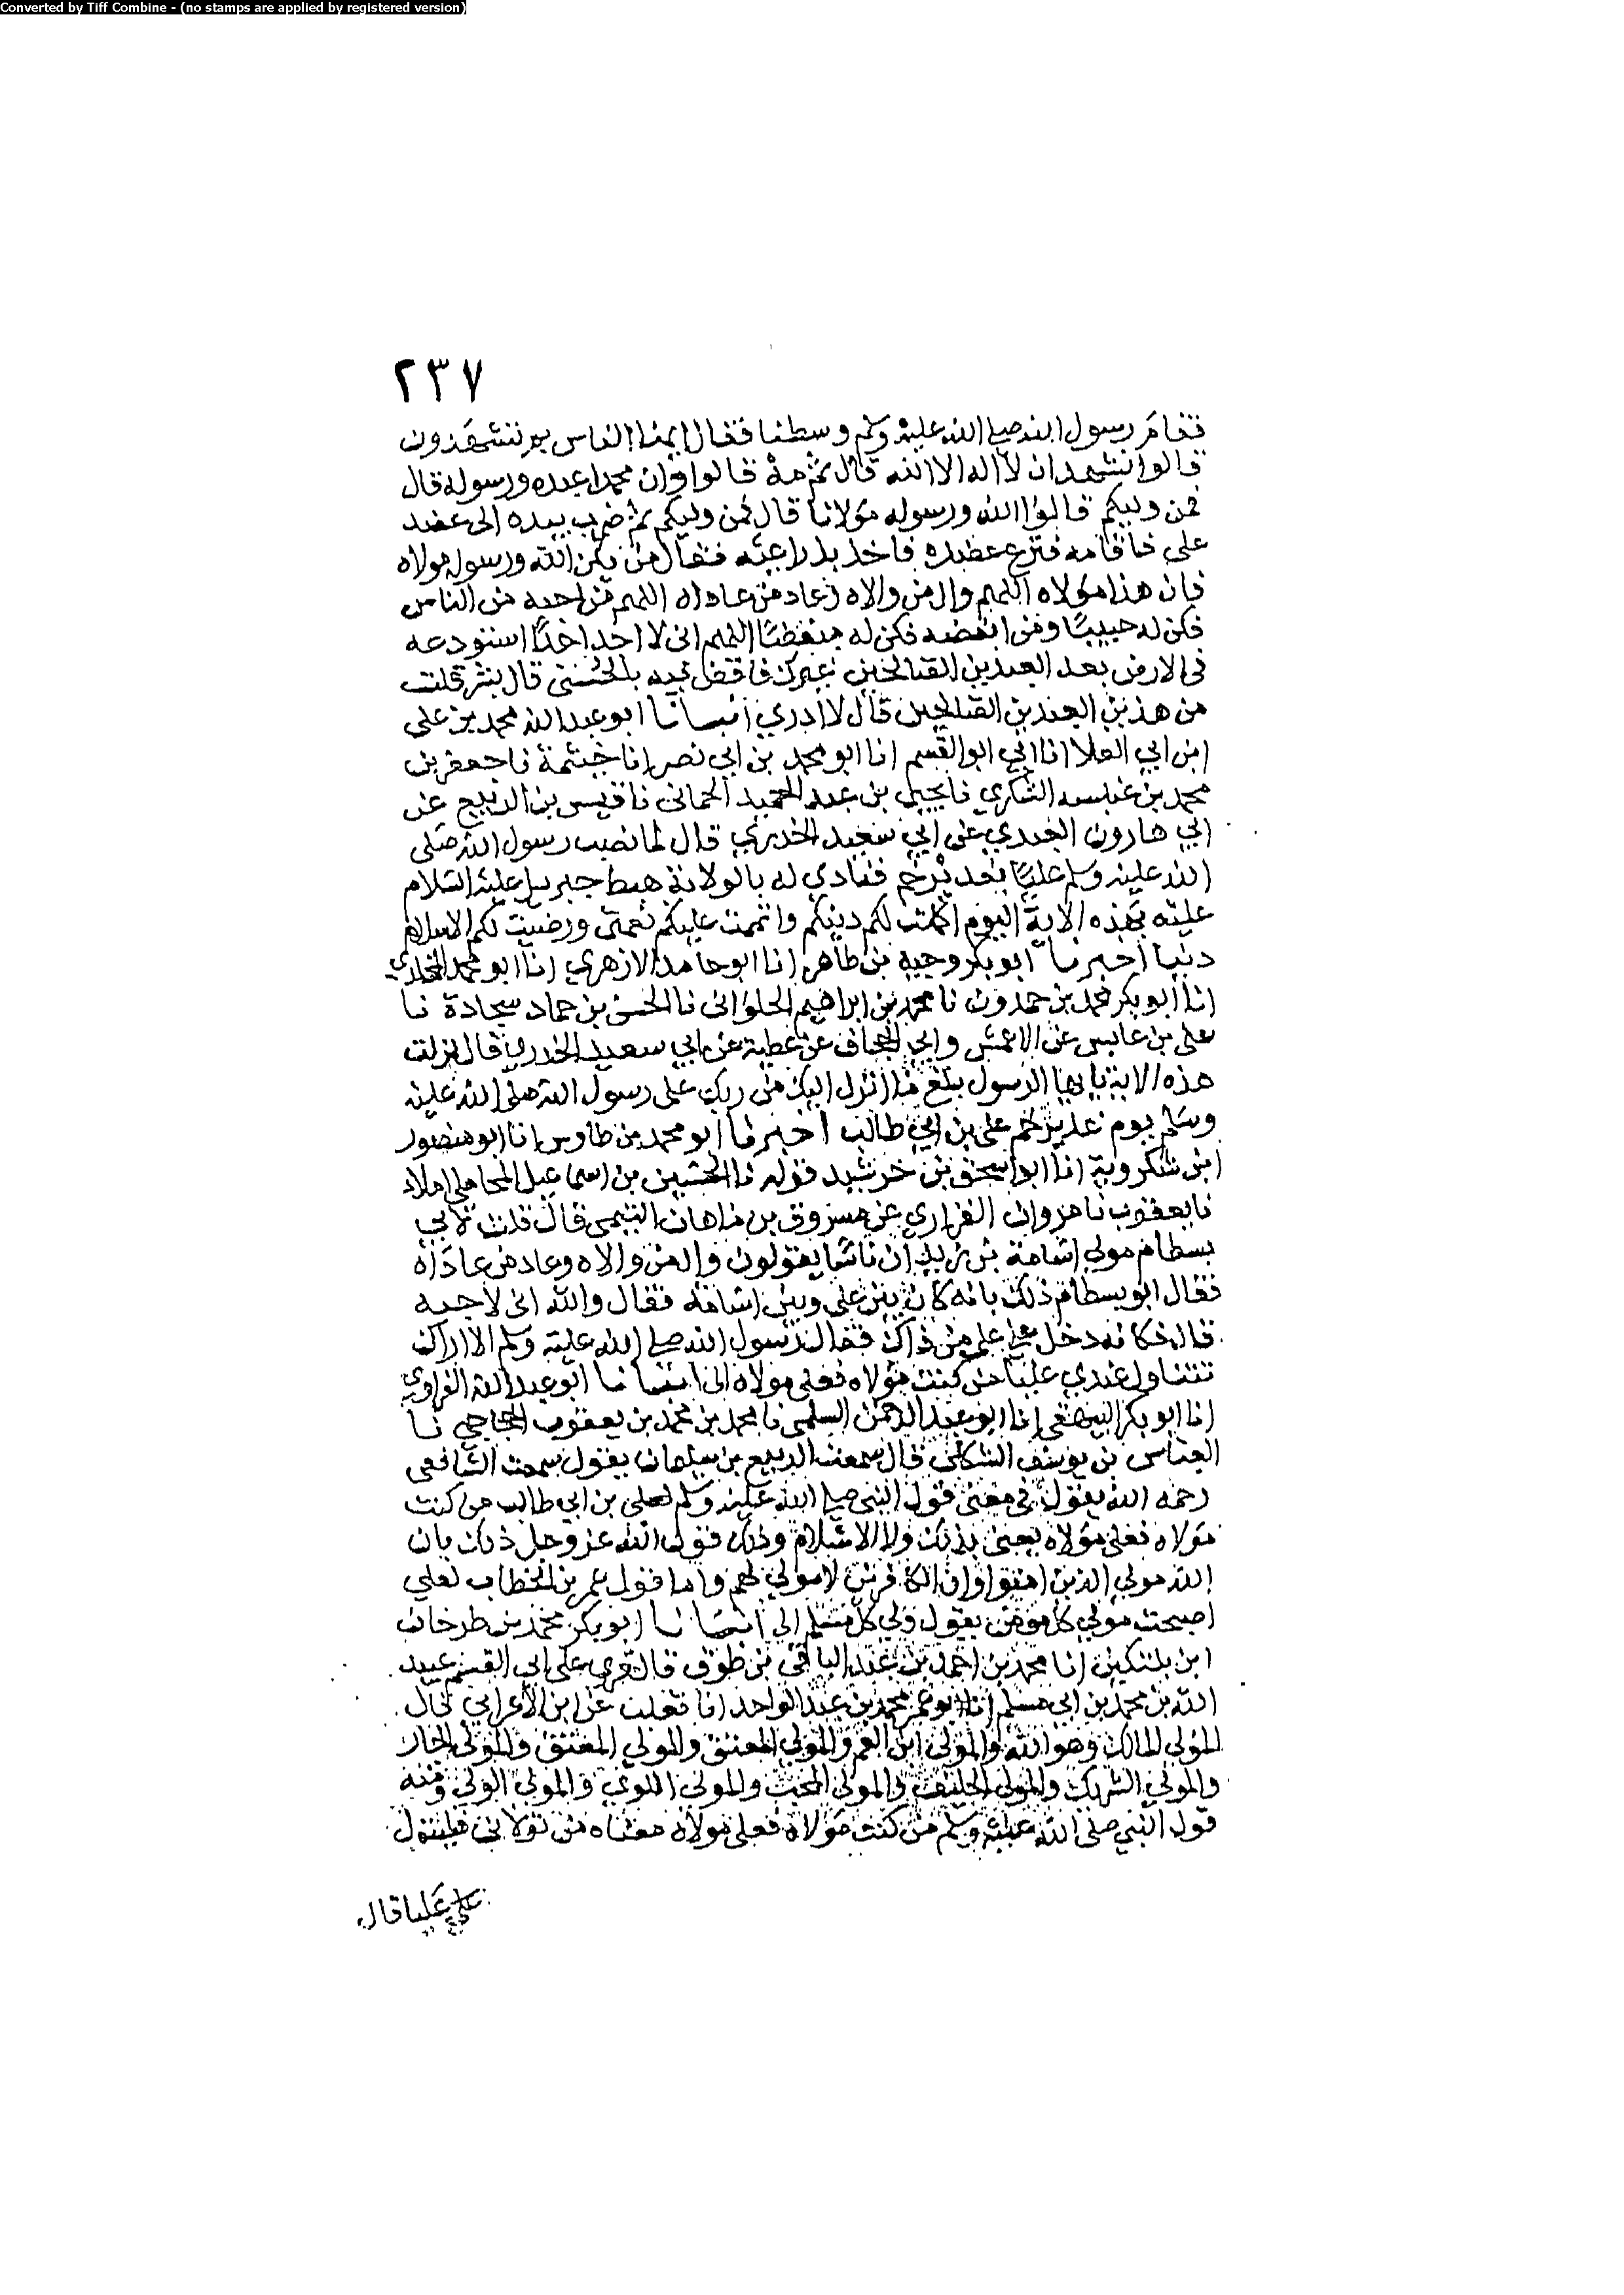 Converted by Tiff Combine - (no stamps are applied by registered version)
٢٣٧
فقام رسول الله صلى الله عليه وسلم وسطنا فقال ايها الناس بم تشهدون
قالوا نشهد ان لا اله الا الله قال ثم مه قالوا وان محمدا عبده ورسوله قال
فمن وليكم قالوا الله ورسوله مولانا قال فمن وليكم ثم ضرب بيده الى عضد
على فاقامه فنزع عضده فاخذ بذراعيه فقال من يكن الله ورسوله مولاه
فان هذا مولاه اللهم وال من والاه وعاد من عاداه اللهم من احبه من الناس
فكن له حبيبا ومن ابغضه فكن له مبغضا اللهم انى لا اجد احدا استودعه
فى الارض بعد العبدين الصالحين غيرك فاقض فيه بالحسنى قال بشر قلت
من هذين العبدين الصالحين قال لا ادري انبانا ابو عبد الله محمد بن على
ابن ابي العلا انا ابي ابو القسم انا ابو محمد بن ابي نصر انا خيثمة نا جعفر بن
محمد بن عنبسه اليشكري نا يحيى بن عبد الحميد الحمانى نا قيس بن الربيع عن
ابي هارون العبدي عن ابي سعيد الخدري قال لما نصب رسول الله صلى
الله عليه وسلم عليا بغدير خم فنادى له بالولاية هبط جبريل عليه السلام
عليه بهذه الاية اليوم اكملت لكم دينكم واتممت عليكم نعمتى ورضيت لكم الاسلام
دينا اخبرنا ابو بكر وجيه بن طاهر انا ابو حامد الازهري انا ابو محمد المخلدي
انا ابو بكر محمد بن حمدون نا محمد بن ابراهيم الحلوانى نا الحسن بن حماد سجادة نا
على بن عابس عن الاعمش وابي الجحاف عن عطية عن ابي سعيد الخدري قال نزلت
هذه الاية يايها الرسول بلغ ما انزل اليك من ربك على رسول الله صلى الله عليه
وسلم يوم غدير خم على بن ابي طالب اخبرنا ابو محمد بن طاوس انا ابو منصور
ابن شكرويه انا ابو اسحق بن خرشيد قوله نا الحسين بن اسماعيل المحاملى املاء
نا يعقوب نا مروان الفزاري عن مسروق بن ماهان التيمى قال قلت لابي
بسطام مولى اسامة بن زيد ان ناسا يقولون وال من والاه وعاد من عاداه
فقال ابو بسطام ذلك بانه كان بين على وبين اسامة فقال والله انى لاحبه
قال فكانه دخل على من ذاك فقال رسول الله صلى الله عليه وسلم الا اراك
تتناول عندي عليا من كنت مولاه فعلى مولاه الى انبانا ابو عبد الله الفراوي
انا ابو بكر البيهقى انا ابو عبد الرحمن السلمى نا محمد بن محمد بن يعقوب الحجاجى نا
العباس بن يوسف الشكلى قال سمعت الربيع بن سليمان يقول سمعت الشافعى
رحمه الله يقول فى معنى قول النبى صلى الله عليه وسلم لعلى بن ابي طالب من كنت
مولاه فعلى مولاه يعنى بذلك ولا الاسلام وذلك قول الله عز وجل ذلك بان
الله مولى الذين امنوا وان الكافرين لا مولى لهم واما قول عمر بن الخطاب لعلي
اصبحت مولى كل مؤمن يقول ولي كل مسلم الى انبانا ابو بكر محمد بن طرخان
ابن بلتكين انا محمد بن احمد بن عبد الباقى بن طوق قال قري على ابي القسم عبيد
الله بن محمد بن ابي مسلم انا ابو عمر محمد بن عبد الواحد انا ثعلب عن ابن الاعرابي قال
المولى المالك وهو الله والمولى ابن العم والمولى المعتق والمولى المعتق والمولى الجار
والمولى الشريك والمولى الحليف والمولى المحب والمولى اللوي والمولى الولى ومنه
قول النبي صلى الله عليه وسلم من كنت مولاه فعلى مولاه معناه من تولانى فليتول
عليا قال